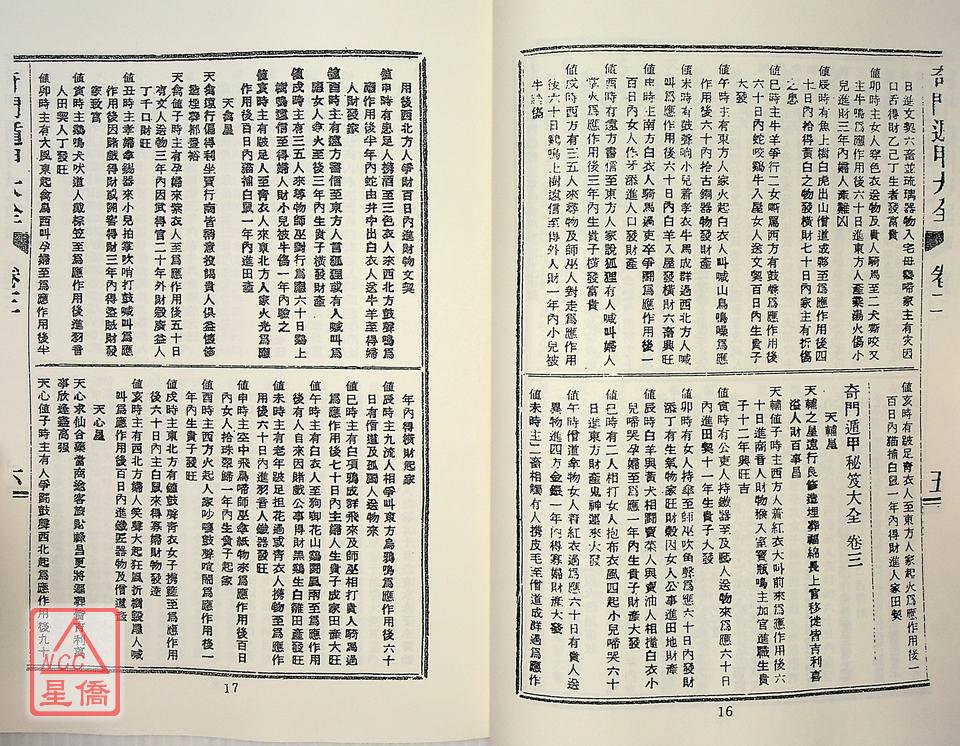 奇門遁甲大全
卷二
五
日進文契六畜並琉璃器物入宅母雞啼家主有災因
口舌得財乙己丁生者發富貴
值卯時主女人穿色衣送物及貴人騎馬至二犬嘶咬又
主牛鳴為應作用後六十日進東方人產業湯火傷小
兒進財三年內婦人產難凶
值辰時有魚上樹白虎出山僧道成夥至為應作用後四
十日內拾得黃白之物發橫財七十日內家主有折傷
之患
值巳時主牛羊爭行二女嘶罵西方有鼓聲為應作用後
六十日內蛇咬雞牛入屋女人送文契百日內生貴子
大發
值午時主有東方人家火起白衣人叫喊山鳥鳴噪為應
作用後六十內拾古銅器物發財產
值未時主有鼓聲響小兒着孝衣牛馬成群過西北方人喊
叫為應作用後六十日內白羊入屋發橫財六畜興旺
值申時主南方白衣人騎馬過吏卒爭鬪為應作用後一
百日內有女人作牙添進人口發財產
值酉時主有遠方書信至東方人家說狐狸有人喊叫婦人
拏火為應作用後三年內生貴子橫發富貴
值戌時西方有三五人來尋物及師巫人對走為應作用
後六十日雞鳴上樹遠信至得外人財一年內小兒被
牛觸傷
值亥時有跛足青衣人至東方人家起火為應作用後一
百日內猫捕白鼠一年內得財進人家田契
奇門遁甲秘笈大全 卷三
天輔星
天輔之星遠行良修造埋葬福綿長上官移徙皆吉利喜
溢人財百事昌
天輔值子時主西方人着紅衣大叫前來為應作用後六
十日進商音人財物猴入室寶瓶鳴主加官進職生貴
子十二年興旺吉
值寅時有公吏人持鐵器至及藝人送物來為應六十日
內進田契十一年生貴子大發
值卯時有女人持傘至師巫吹角聲為應六十日內發財
添丁有生氣物家旺財穀因女人公事進田地財產
值辰時白羊與黃犬相鬪賣菜人與賣油人相撞白衣小
兒啼哭孕婦至為應一年內生貴子財產大發
值巳時有二人相打女人抱布衣風四起小兒啼哭六十
日進東方財產鬼神運來大發
值午時僧道拿物女人着紅衣過為應六十日有貴人送
異物進四方金銀一年內得寡婦財產大發
值未時主二畜相觸有人携皮毛至僧道成群過為應作
16
用後西北方人爭財百日內進財物文契
值申時主有患足人携酒至三色衣人來西北方鼓聲鳴為
應作用後半年內蛇由井中出白衣人送牛羊至得婦
人財發家
值酉時主有遠方書信至東方人言狐狸或有人喊叫為
應女人拿火至後三年內生貴子橫發財產
值戌時主有三五人來尋物師巫對行為應六十日雞上
樹鳴遠信至得婦人財小兒被牛傷一年內驗之
值亥時主有跛足人至青衣人來東北方人家火光為應
作用後百日內猫捕白鼠一年內進田畜
天禽星
天禽遠行偏得利坐賈行商皆稱意投謁貴人俱益懷修
造埋葬都豐裕
天禽值子時主有孕婦來紫衣人至為應作用後五十日
有文人送物三年內因武得官二十年外財穀廣益人
丁千口財旺
值丑時主孝婦拿錫器來小兒拍掌吹哨打鼓喊叫為應
作用後因賭戲得財或開窖得財三年內得盜賊財發
家致富
值寅時主鷄鳴犬吠道人戴棕笠至為應作用後進羽音
人田契人丁發旺
值卯時主有大風東起禽鳥西叫孕婦至為應作用後半
年內得橫財起家
值辰時主九流人相爭叫東方烏鴉鳴為應作用後六十
日有僧道及孤圇人送物來
值巳時主有白項鴉成群飛來及師巫相打貴人騎馬過
為應作用後七十日內主婦人生貴子成家田產大旺
值午時主有白衣人至狗啣花山鷄鬪風雨至為應作用
後有人自來因賭戲公事得財黑鷄生白雛田產發旺
值未時主有老年跛足担花過或青衣人携物至為應作
用後六十日內進羽音人鐵器發旺
值申時主空中飛鳥啼師巫拿紙物來為應作用後百日
內女人拾珠翠歸一年內生貴子起家
值酉時主西方火起人家吵嚷鼓聲喧鬧為應作用後一
年內生貴子旺
值戌時主東北方有鐘鼓聲青衣女子携籃至為應作用
後六十日內主白鼠來得寡婦財物發達
值亥時主有西北方婦女笑聲大起狂風折樹毀屋人喊
叫為應作用後百日內進鐵匠器物及僧道產
天心星
天心求仙合藥當商途客旅財祿昌更將遷葬皆吉利萬
事欣逢盡高強
天心值子時主有人爭鬪鼓聲西北起為應作用後九十
17
奇門遁甲大全
卷三
六
NCC
星僑